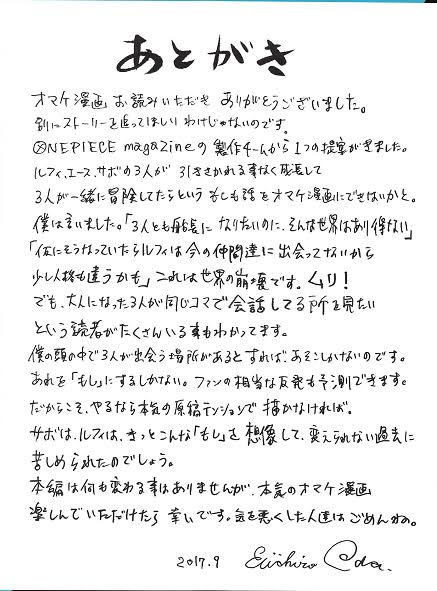 あとがき
オマケ漫画お読みいただき ありがとうございました。
別にストーリーを追ってほしいわけじゃないのです。
ONEPIECE magazineの製作チームから1つの提案がきました。
ルフィ、エース、サボの3人が 引きさかれる事なく成長して
3人が一緒に冒険してたらという もしも話をオマケ漫画にできないかと。
僕は言いました。「3人とも船長に なりたいのに、そんな世界はあり得ない」
「仮にそうなっていたらルフィは今の仲間達に出会ってないから
少し人格も違うかも」これは世界の崩壊です。ムリ!
でも、大人になった3人が同じコマで会話してる所を見たい
という読者がたくさんいる事もわかってます。
僕の頭の中で3人が出会う場所があるとすれば、あそこしかないのです。
あれを「もし」にするしかない。ファンの相当な反発も予測できます。
だからこそ、やるなら本気の原稿テンションで 描かなければ。
サボは、ルフィは、きっとこんな「もし」を 想像して、変えられない過去に
苦しめられたのでしょう。
本編は何も変わる事はありませんが、本気のオマケ漫画
楽しんでいただけたら 幸いです。気を悪くした人達はごめんかも。
2017.9 Eiichiro Oda.